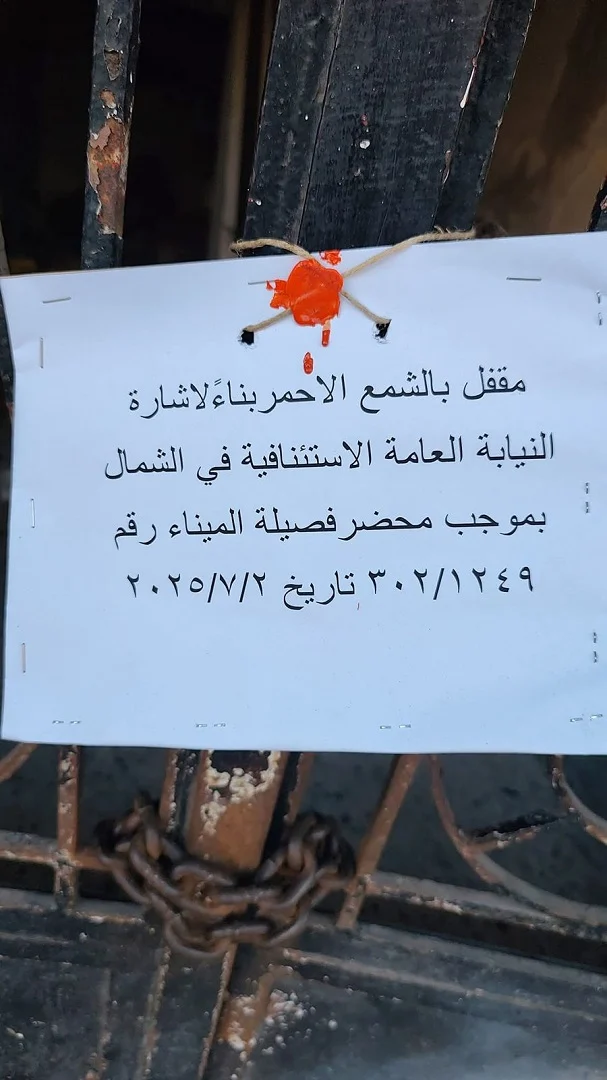 مقفل بالشمع الاحمر بناءً لاشارة
النيابة العامة الاستئنافية في الشمال
بموجب محضر فصيلة الميناء رقم
٣٠٢/١٢٤٩ تاريخ ٢٠٢٥/٧/٢